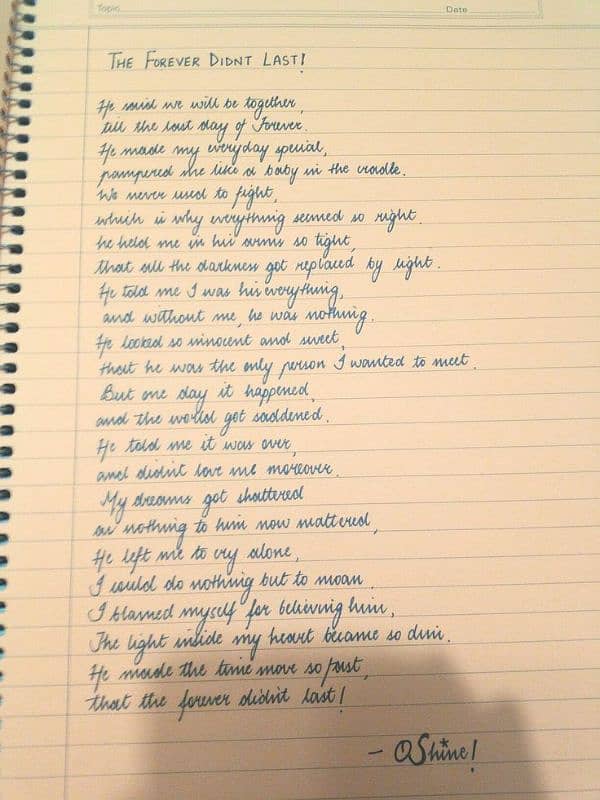 Topic
Date
THE FOREVER DIDNT LAST!
He said we will be together,
till the last day of Forever.
He made my everyday special,
pampered me like a baby in the cradle.
We never used to fight,
which is why everything seemed so right.
he held me in his arms so tight,
that all the darkness got replaced by light.
He told me I was his everything,
and without me, he was nothing.
He looked so innocent and sweet,
that he was the only person I wanted to meet.
But one day it happened,
and the world got saddened.
He told me it was over,
and didn't love me moreover.
My dreams got shattered
as nothing to him now mattered,
He left me to cry alone,
I could do nothing but to moan.
I blamed myself for believing him,
The light inside my heart became so dim.
He made the time move so fast,
that the forever didn't last!
- OShine!